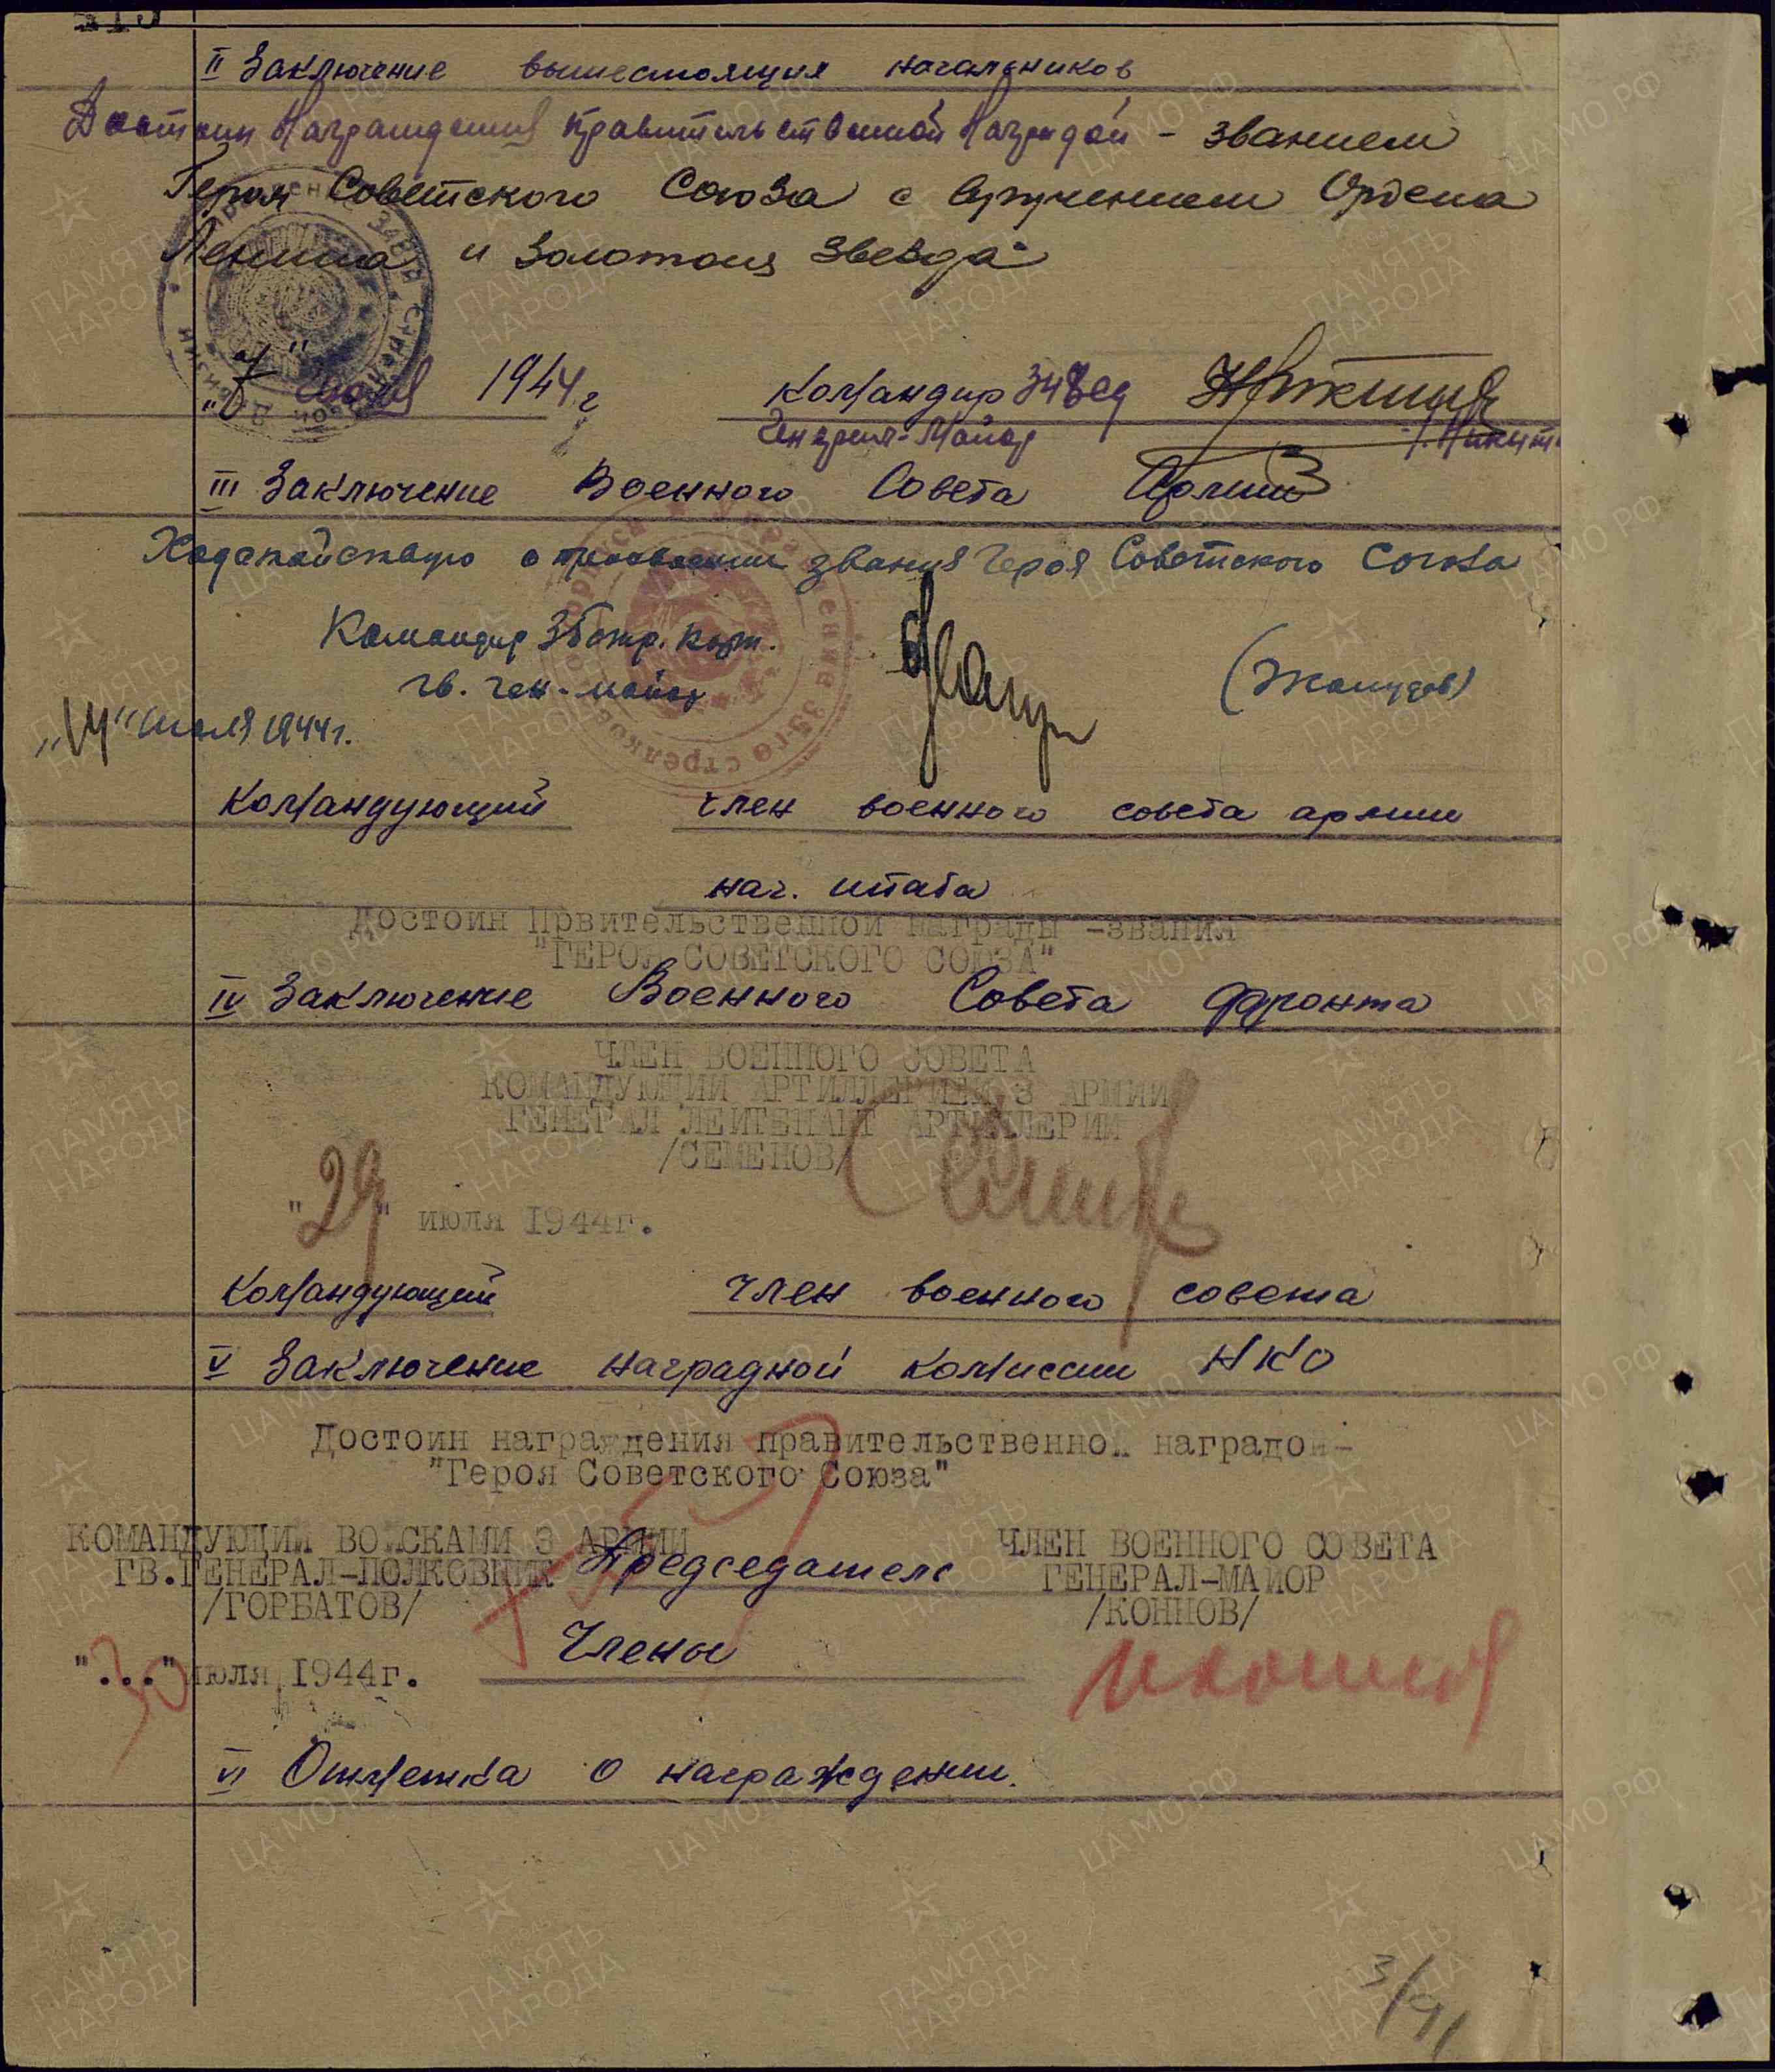 II Заключение вышестоящих начальников
Достоин Награждения правительственной Наградой - званием
Героя Советского Союза с вручением Ордена
Ленина и Золотая Звезда
июля 1944 г Командир 348 сд
Генерал-Майор
III Заключение Военного Совета Армии
Ходатайствую о присвоении звания Героя Советского Союза
Командир 35 стр. корп.
гв. ген-майор (Жолудев)
"14" июля 1944г.
Командующий Член военного совета армии
нач. штаба
Достоин Првительственной награды -звания
"ГЕРОЯ СОВЕТСКОГО СОЮЗА"
IV Заключение Военного Совета Фронта
ЧЛЕН ВОЕННОГО СОВЕТА
КОМАНДУЮЩИЙ АРТИЛЛЕРИЕЙ 3 АРМИИ
ГЕНЕРАЛ ЛЕЙТЕНАНТ АРТИЛЛЕРИИ
/СЕМЕНОВ/
"29" июля 1944г.
Командующий Член военного совета
V Заключение наградной комиссии НКО
Достоин награждения правительственной наградой-
"Героя Советского Союза"
КОМАНДУЮЩИЙ ВОЙСКАМИ 3 АРМИИ ЧЛЕН ВОЕННОГО СОВЕТА
ГВ.ГЕНЕРАЛ-ПОЛКОВНИК Председатель ГЕНЕРАЛ-МАЙОР
/ГОРБАТОВ/ /КОННОВ/
Члены
"30" июля 1944г.
VI Отметка о награждении.
3/91
ПАМЯТЬ НАРОДА
ЦАМО РФ